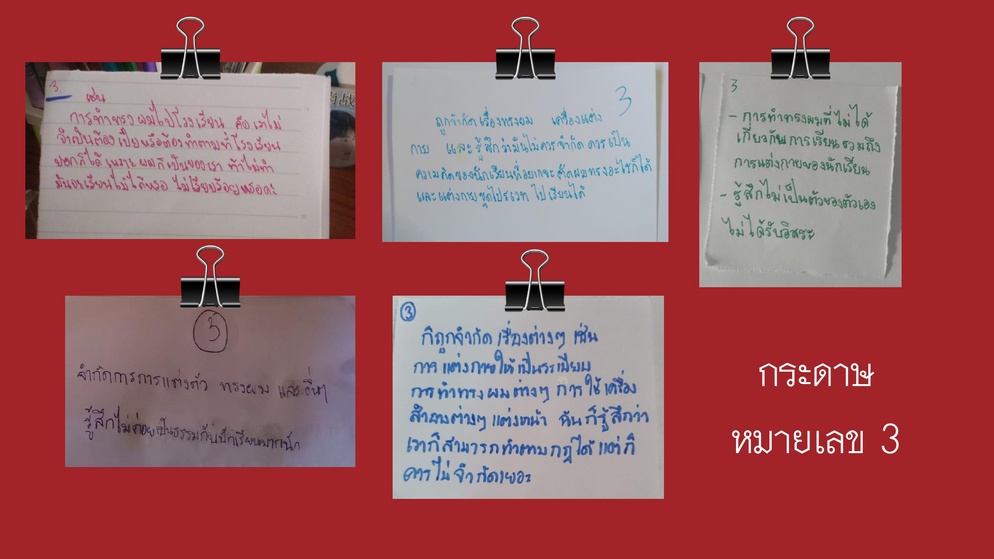 3.
เช่น
การทำทรงผมไปโรงเรียน คือ เราไม่
จำเป็นต้อง เปียหรือต้องทำตามที่โรงเรียน
บอกก็ได้ เพราะ ผมก็เป็นของเรา ถ้าไม่ทำ
มันจะเรียนไม่ได้หรอ ไม่เรียบร้อยหรอคะ
3
ถูกจำกัดเรื่องทรงผม เครื่องแต่ง
กาย และรู้สึกว่ามันไม่ควรจำกัด ควรเป็น
ความคิดของนักเรียนที่อยากจะตัดผมทรงอะไรก็ได้
และแต่งกายชุดไปรเวท ไปเรียนได้
3
- การทำทรงผมที่ไม่ได้
เกี่ยวกับการเรียนรวมถึง
การแต่งกายของนักเรียน
- รู้สึกไม่เป็นตัวของตัวเอง
ไม่ได้รับอิสระ
3
จำกัดการการแต่งตัว ทรงผม และอื่นๆ
รู้สึกไม่ค่อยเป็นธรรมกับนักเรียนมากนัก
3
ก็ถูกจำกัดเรื่องต่างๆ เช่น
การแต่งกายให้เป็นระเบียบ
การทำทรงผมต่างๆ การใช้เครื่อง
สำอางต่างๆ แต่งหน้า ฉันก็รู้สึกว่า
เราก็สามารถทำตามกฎได้ แต่ก็
ควรไม่จำกัดเยอะ
กระดาษ
หมายเลข 3